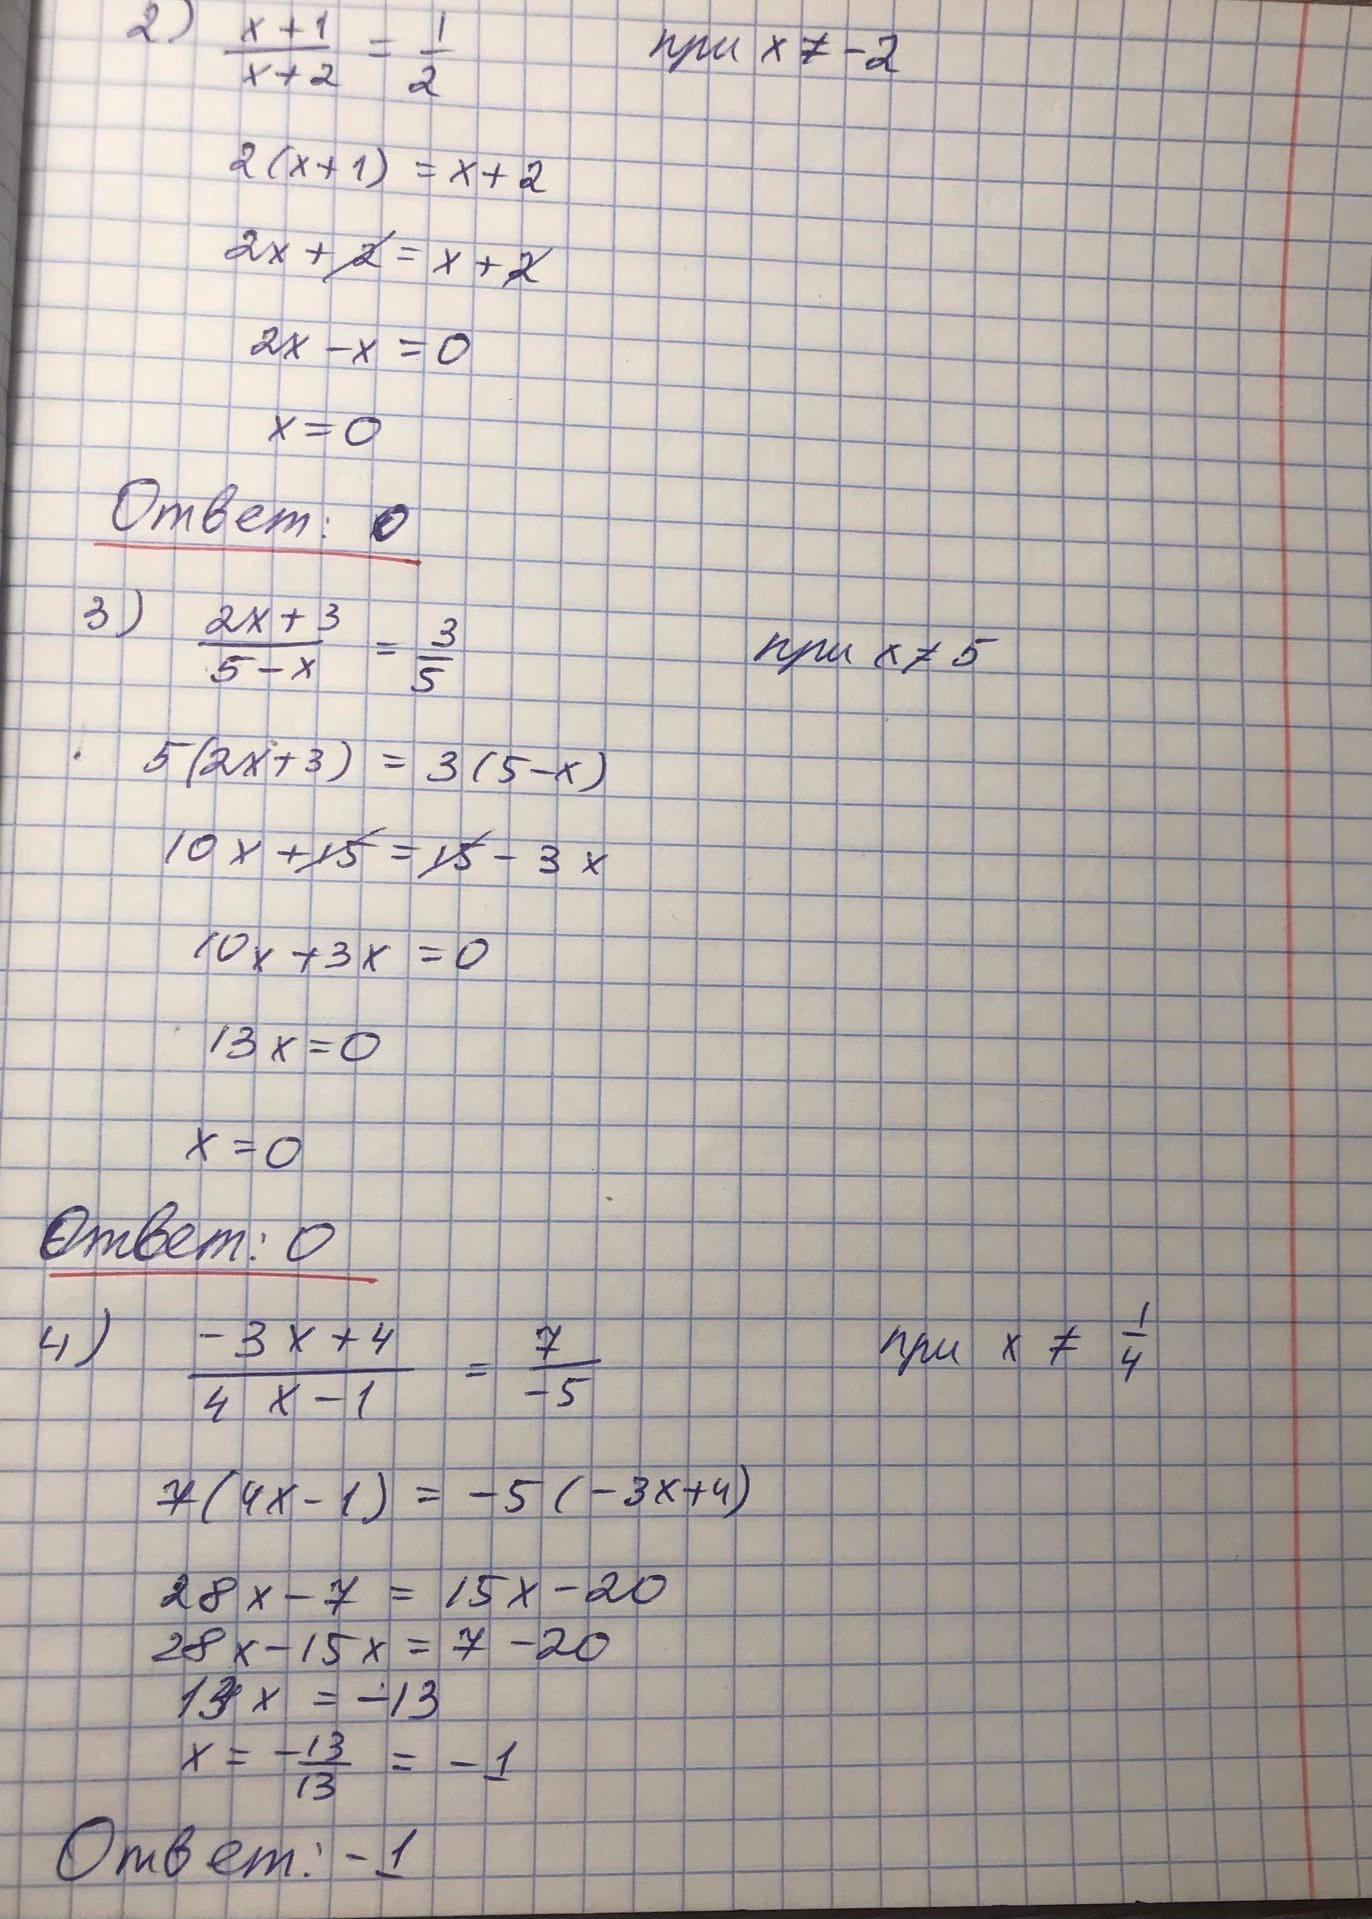 2) (x+1)/(x+2) = 1/2 при x ≠ -2
2(x+1) = x+2
2x + 2 = x + 2
2x - x = 0
x = 0
Ответ: 0
3) (2x+3)/(5-x) = 3/5 при x ≠ 5
5(2x+3) = 3(5-x)
10x + 15 = 15 - 3x
10x + 3x = 0
13x = 0
x = 0
Ответ: 0
4) (-3x+4)/(4x-1) = 7/(-5) при x ≠ 1/4
7(4x-1) = -5(-3x+4)
28x - 7 = 15x - 20
28x - 15x = 7 - 20
13x = -13
x = -13/13 = -1
Ответ: -1